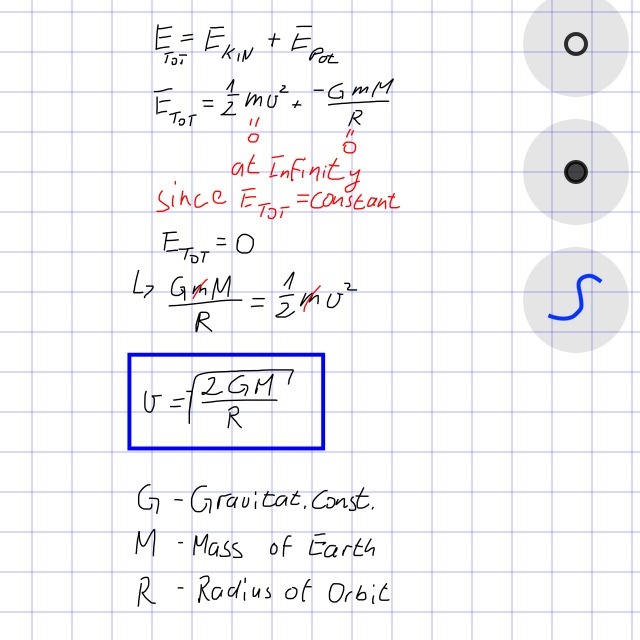 E_TOT = E_KIN + E_Pot
E_TOT = 1/2 mv² + -GmM/R
" "
0 0
at Infinity
since E_TOT = constant
E_TOT = 0
↳ GmM/R = 1/2 mv²
v = √(2GM/R)
G - Gravitat. Const.
M - Mass of Earth
R - Radius of Orbit